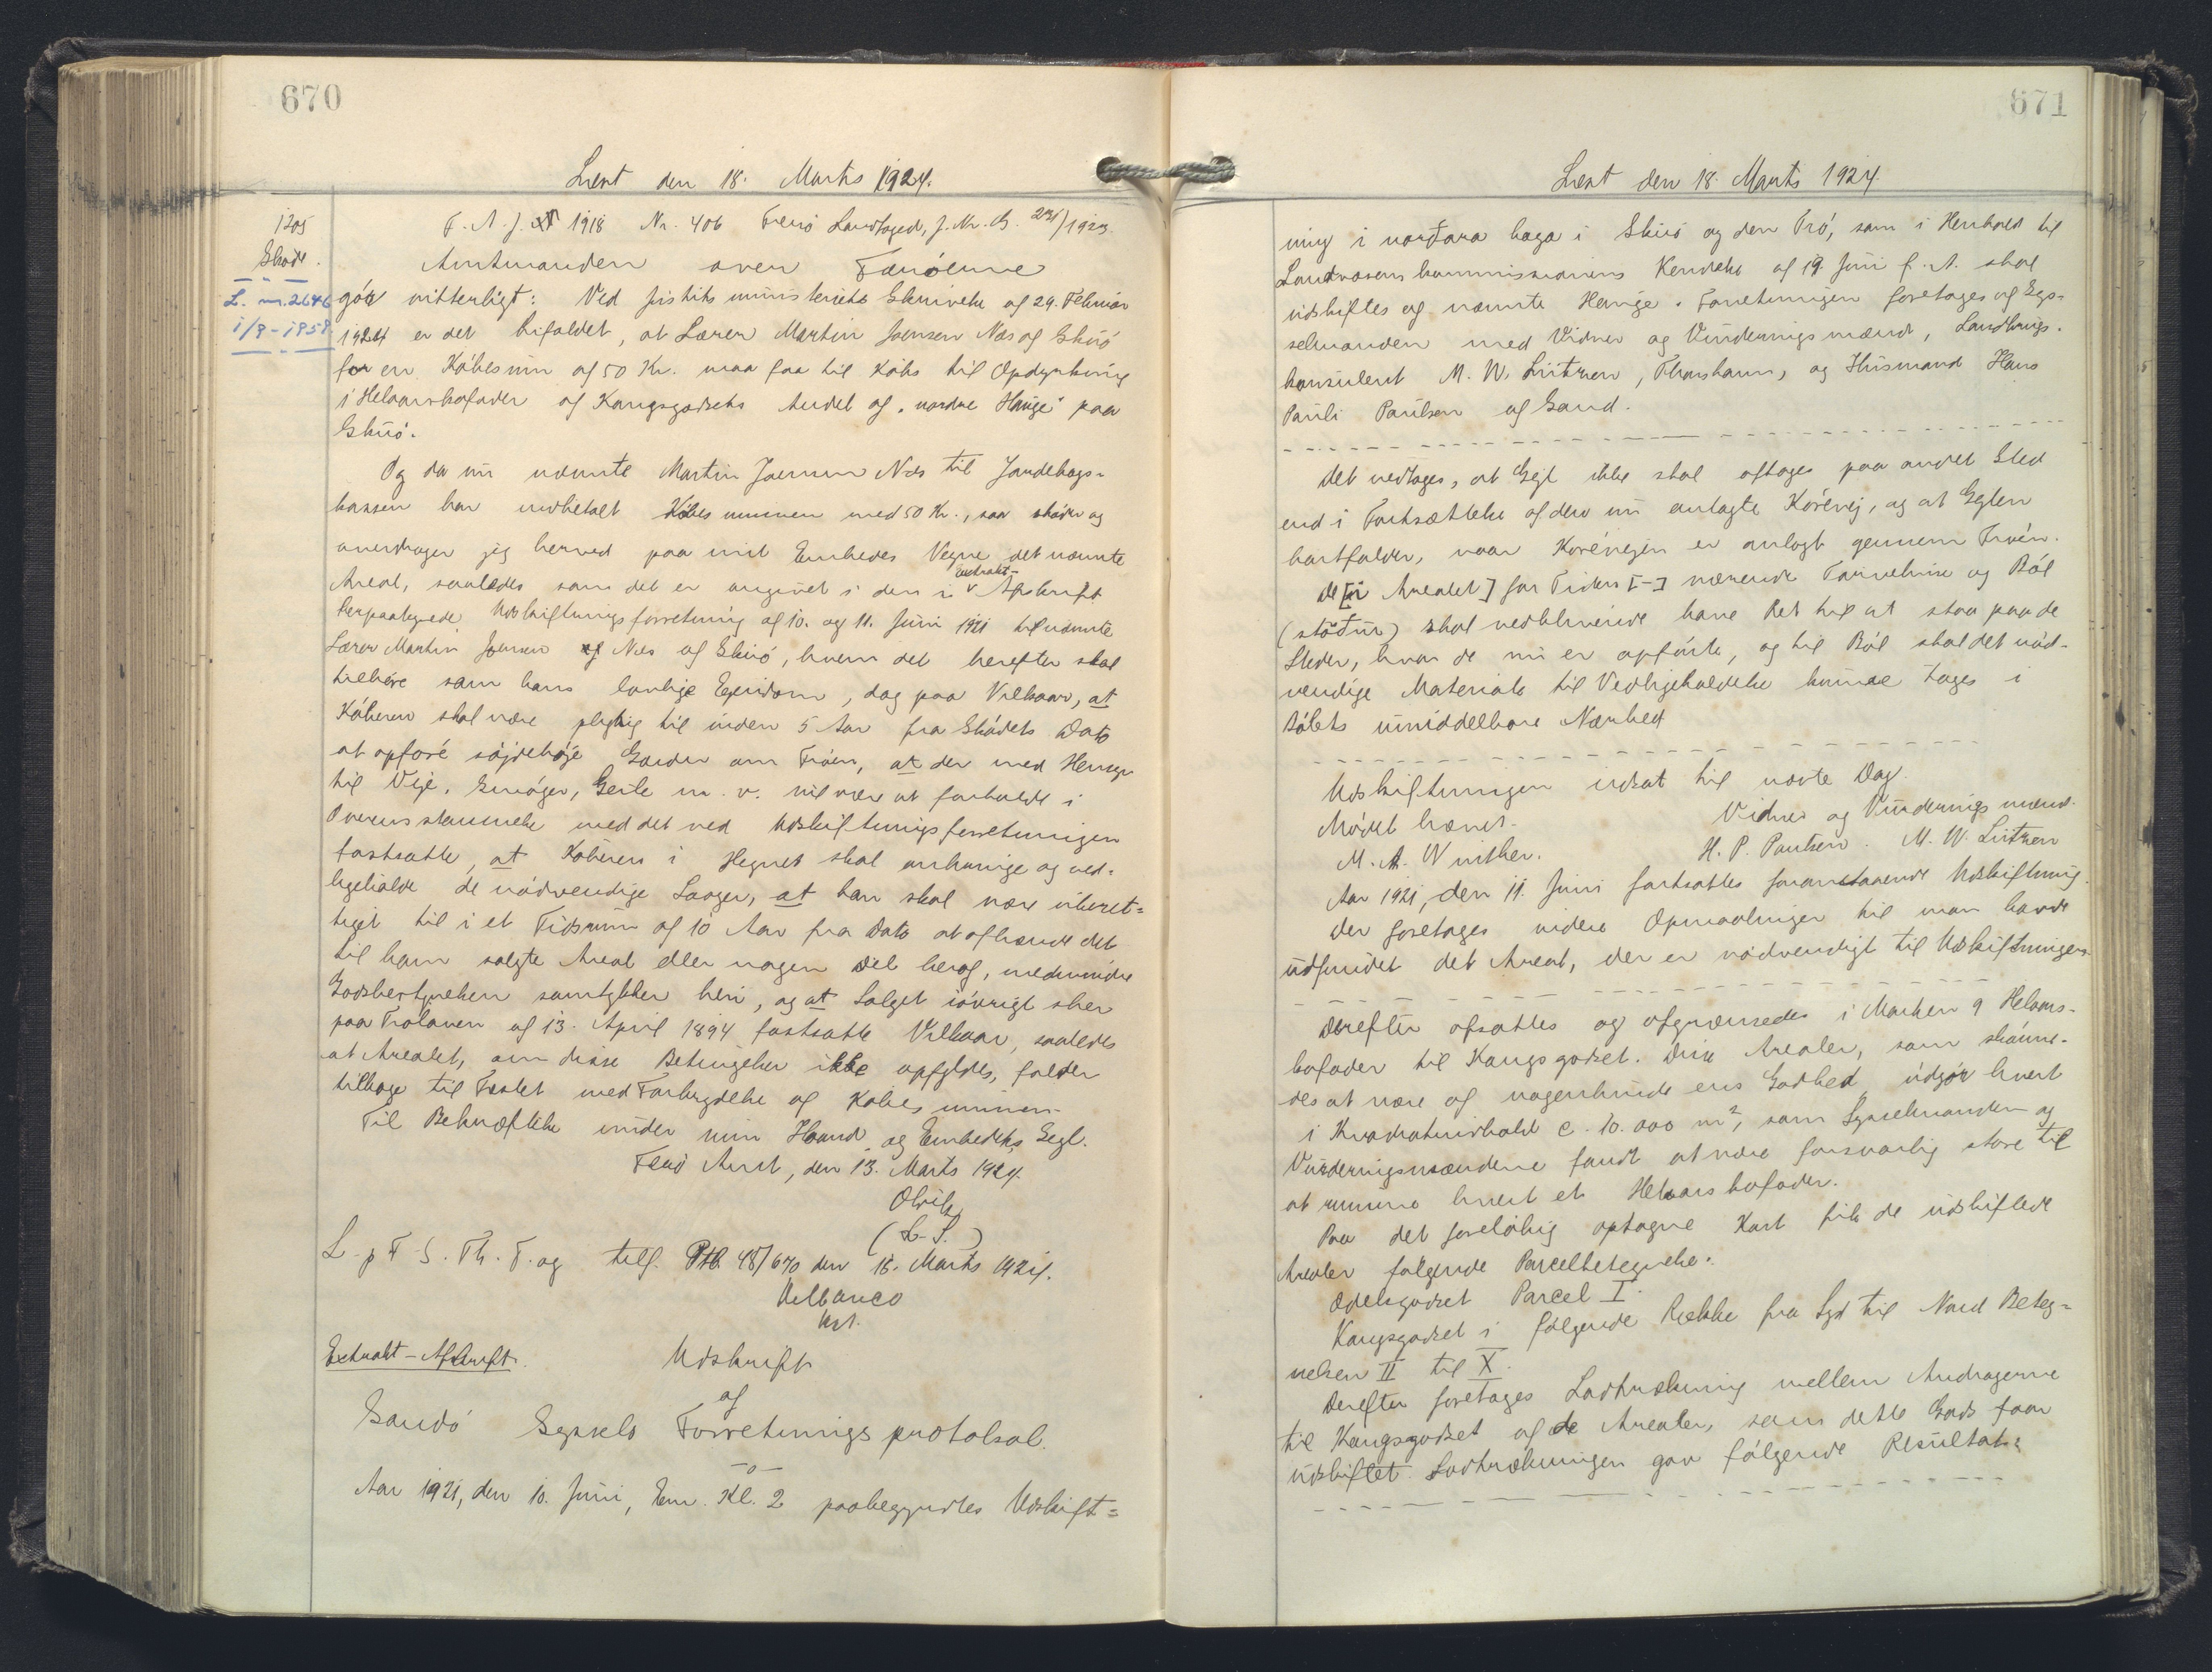 670
Læst den 18. Marts 1924.
1205
Skøde.
L. nr. 2646
1/9-1958.
F. A. J. 1918 Nr. 406 Færø Landfoged, J. Nr. B. 231/1923.
Amtmanden over Færöerne
gör vitterligt: Ved Justitsministeriets Skrivelse af 29. Februar
1924 er det bifaldet, at Lærer Martin Joensen Næs af Skuö
for en Köbesum af 50 Kr. maa faa til Köbs til Opdyrkning
1 Helaarskofoder af Kongsgodsets Andel af "nordre Hauge" paa
Skuö.
Og da nu nævnte Martin Joensen Næs til Jordebogs-
kassen har indbetalt Köbesummen med 50 Kr., saa sköder og
overdrager jeg herved paa mit Embedes Vegne det nævnte
Areal, saaledes som det er angivet i den i Extrakt- Afskrift
herpaategnede Udskiftningsforretning af 10. og 11. Juni 1921 til nævnte
Lærer Martin Joensen Næs af Skuö, hvem det herefter skal
tilhöre som hans lovlige Ejendom, dog paa Vilkaar, at
Köberen skal være pligtig til inden 5 Aar fra Sködets Dato
at opföre söjdehöje Gærder om Tröen, at der med Hensyn
til Veje, Smöger, Geile m. v. vil være at forholde i
Overensstemmelse med det ved Udskiftningsforretningen
fastsatte, at Köberen i Hegnet skal anbringe og ved-
ligeholde de nödvendige Laager, at han skal være uberet-
tiget til i et Tidsrum af 10 Aar fra Dato at afhænde det
til ham solgte Areal eller nogen Del heraf, medmindre
Godsbestyrelsen samtykker heri, og at Salget iövrigt sker
paa Tröloven af 13. April 1894 fastsatte Vilkaar, saaledes
at Arealet, om disse Betingelser ikke opfyldes, falder
tilbage til Fæstet med Fortabelse af Köbesummen.
Til Bekræftelse under min Haand og Embedets Segl.
Færö Amt, den 13. Marts 1924.
(L. S.)
L. p F. S. Th. T. og tilf. Ptl. 48/670 den 18. Marts 1924.
Kst.
Extrakt-Afskrift.
Udskrift
af
Sandö Syssels Forretningsprotokol.
-0-
Aar 1921, den 10. Juni, Em. Kl. 2 paabegyndtes Udskift-
671
Læst den 18. Marts 1924.
ning i norðara haga i Skuö og den Trö, som i Henhold til
Landvæsenskommissionens Kendelse af 19. Juni f. A. skal
udskiftes af nævnte Hauge. Forretningen foretages af Sys-
selmanden med Vidner og Vurderingsmænd, Landbrugs-
konsulent M. W. Lützen, Thorshavn, og Husmand Hans
Pauli Paulsen af Sand.
Det vedtages, at Gejl ikke skal aftages paa andet Sted
end i Fortsættelse af den nu anlagte Körevej, og at Gejlen
bortfalder, naar Körevejen er anlagt gennem Tröen.
De [i Arealet] for Tiden [-] værende Törvehuse og Ból
(stöður) skal vedblivende have Ret til at staa paa de
Steder, hvor de nu er opförte, og til Ból skal det nöd-
vendige Materiale til Vedligeholdelse kunne tages i
Bólets umiddelbare Nærhed
Udskiftningen udsat til næste Dag.
Mödet hævet. Vidner og Vurderingsmænd.
M. A. Winther. H. P. Paulsen. M. W. Lützen
Aar 1921, den 11. Juni fortsattes foranstaaende Udskiftning.
Der foretages videre Opmaalinger til man havde
udfundet det Areal, der er nödvendigt til Udskiftningen.
Derefter afsattes og afgrænsedes i Marken 9 Helaars-
kofoder til Kongsgodset. Disse Arealer, som skönne-
des at være af nogenlunde ens Godhed, udgör hvert
i Kvadratindhold c. 10.000 m², som Sysselmanden og
Vurderingsmændene fandt at være forsvarlig store til
at rumme hvert et Helaarskofoder.
Paa det foreløbig optagne Kort fik de udskiftede
Arealer følgende Parcelbetegnelse:
Odelsgodset Parcel I.
Kongsgodset i følgende Række fra Syd til Nord Beteg-
nelsen II til X.
Derefter foretages Lodtrækning mellem Andragerne
til Kongsgodset af de Arealer, som dette Gods faar
udskiftet. Lodtrækningen gav følgende Resultat: